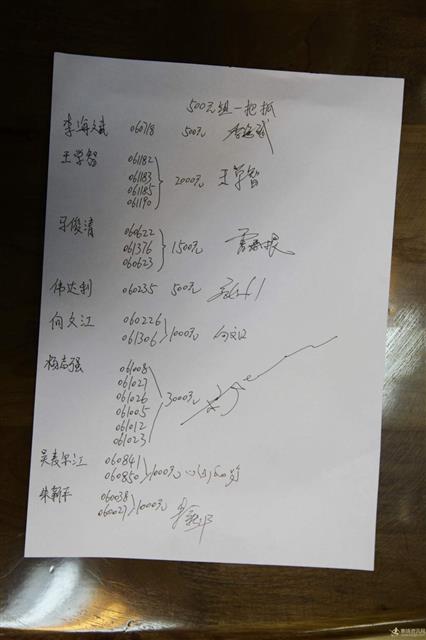 500元组一把抓
李海斌 060718 500元 李海斌
王学智 061182
061183
061185
061190
2000元 王学智
牙俊清 060622
061376
060623
1500元
伟达利 060235 500元
向文江 060226
061306
1000元 向文江
杨志强 061008
061027
061026
061005
061012
061023
3000元
吴麦尔江 060841
060850
1000元
朱新平 060038
060027
1000元